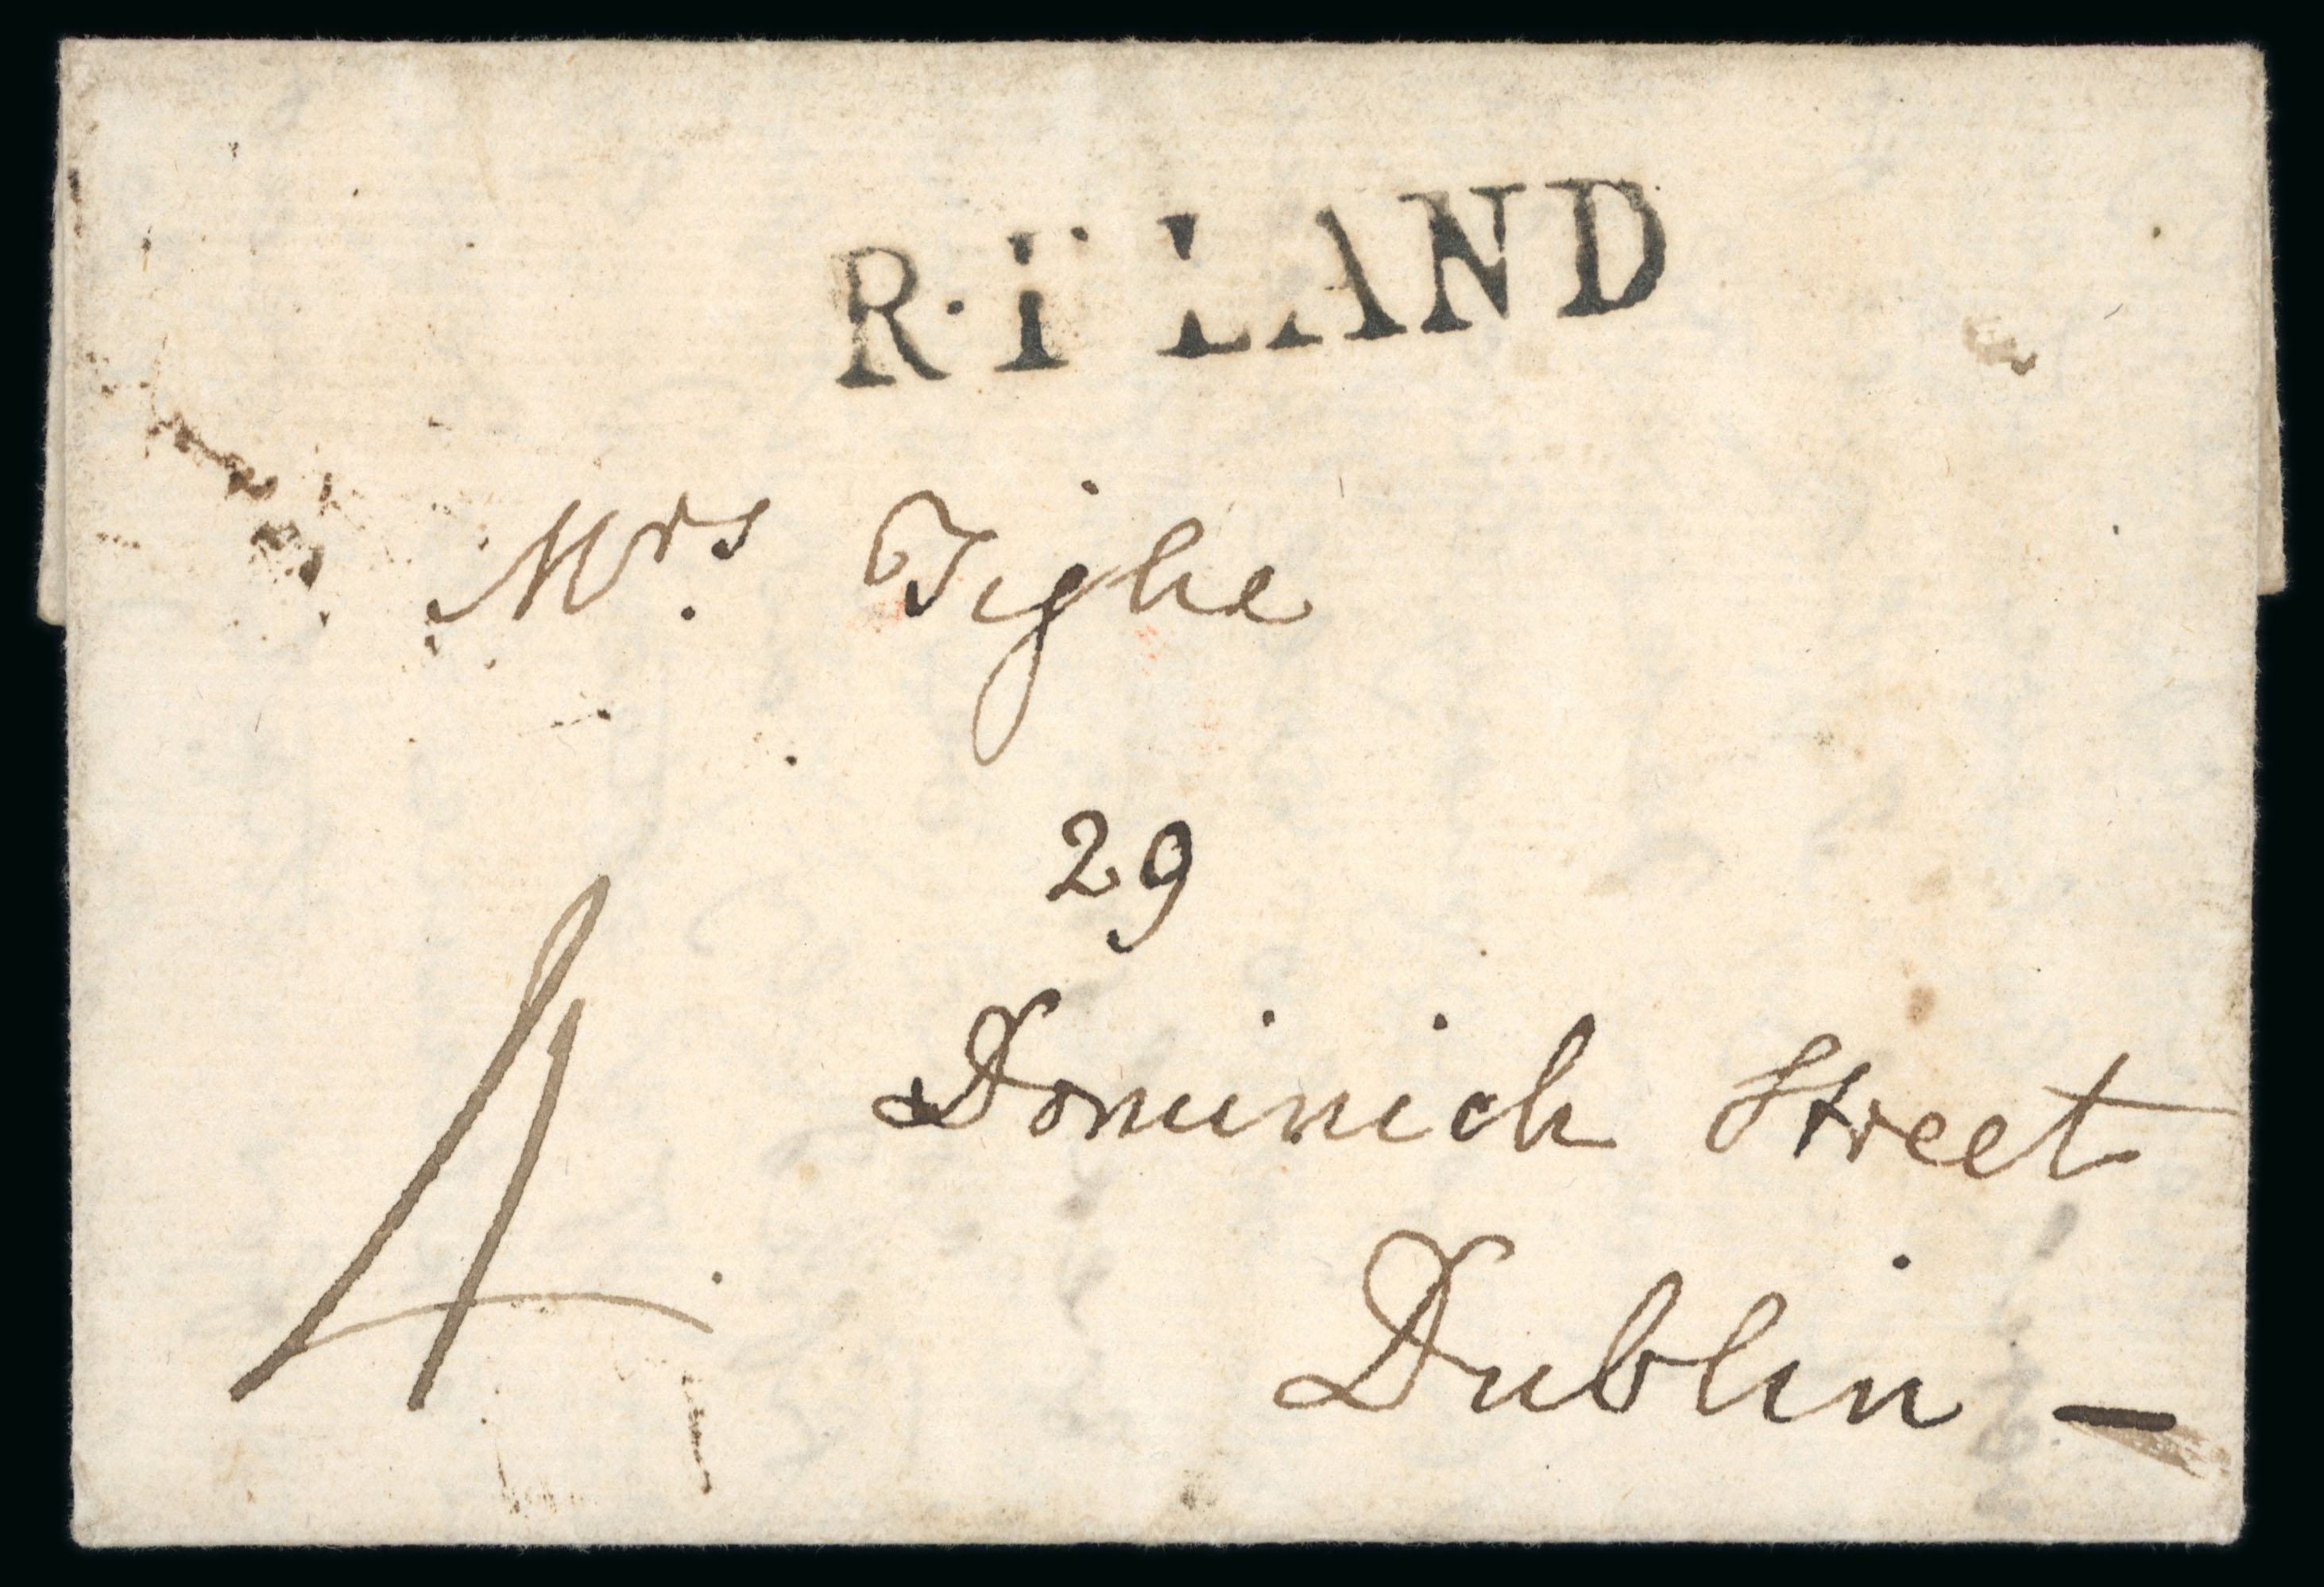 R·F LAND
Mrs. Tighe
29
Dominick Street
Dublin —
4